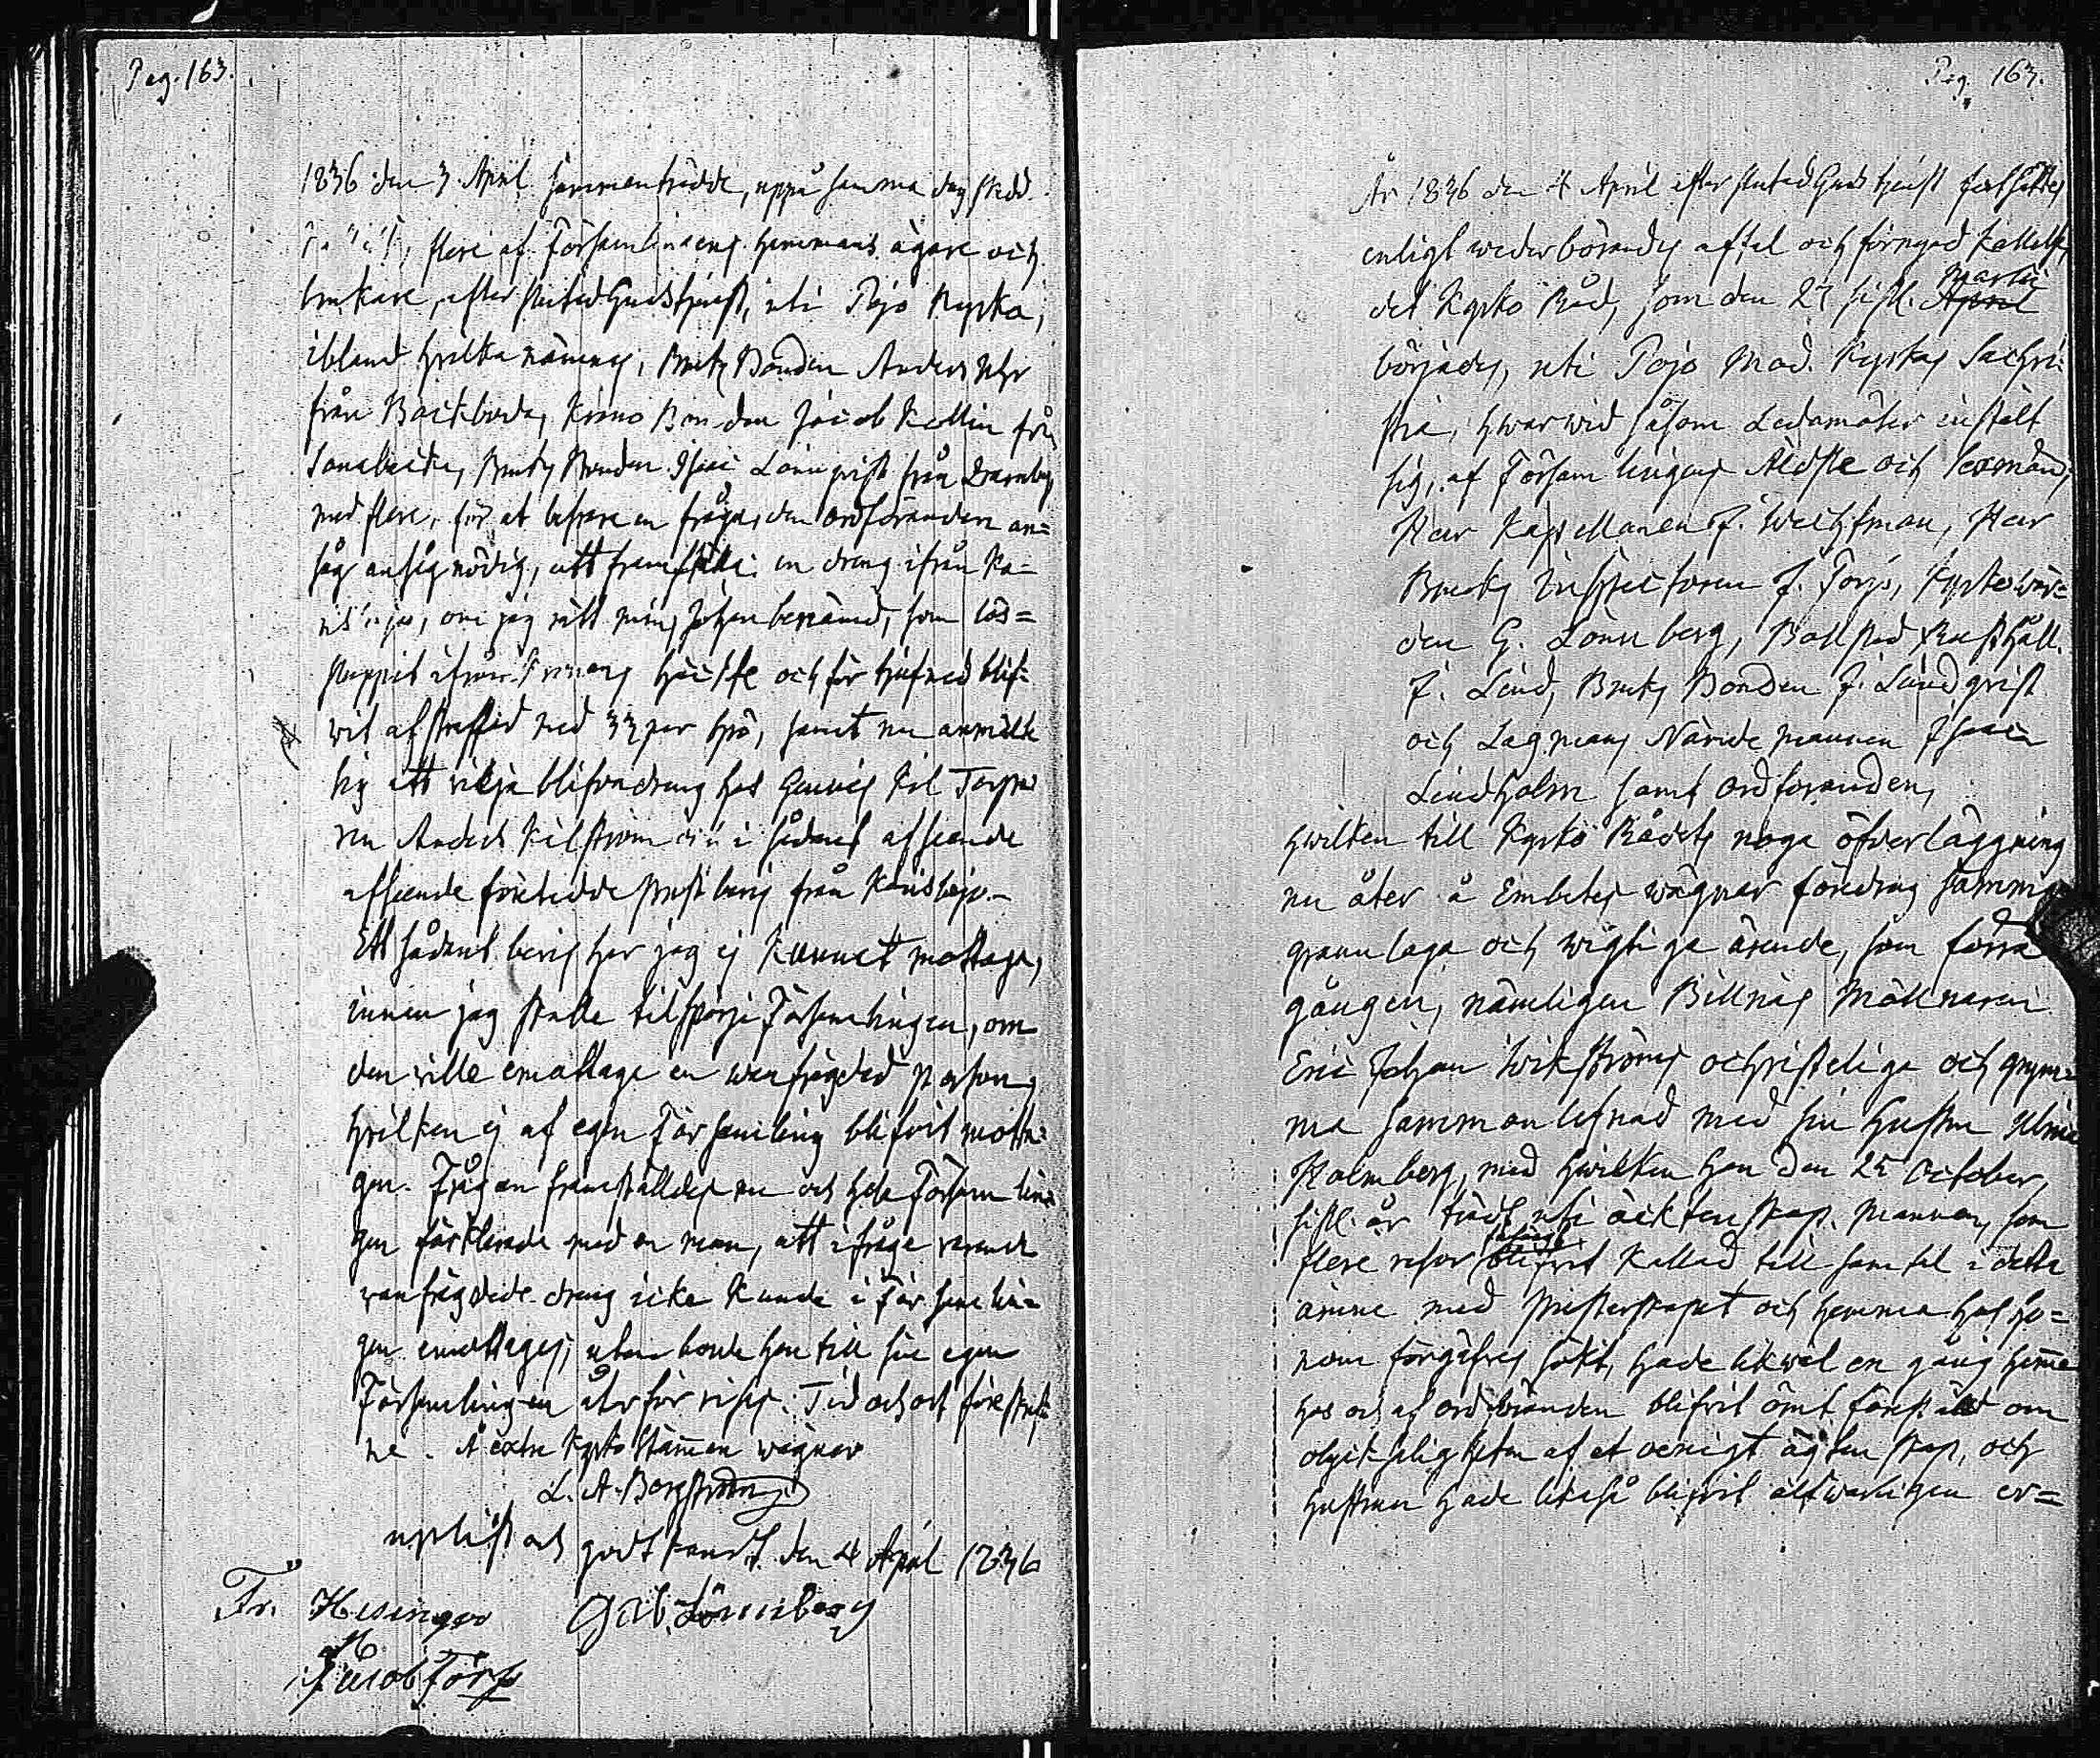 Pag. 163.
1836 den 3 April sammanträdde, uppå samma dag skedd
flere af Församlingens hemmans ägare och
brukare, efter slutad Gudstjenst, uti Pojo Kyrka,
ibland hvilka nämnes, Bruks Bonden Anders
från Backboda, Krono Bonden Jacob Kollin från
Bruks Bonden Isaac Lönnqvist från
med flere, för at besvara en fråga, den ordföranden an=
såg nödig, att framställa: en dräng ifrån Ka=
om jag rätt mins, Johan benämnd, som lös=
sluppit ifrån Kronans häckte och för tjufnad blif=
vit afstraffad med 33 par spö, samt nu anmält
sig att vilja blifva dräng hos
Anders Kilström i sådant afseende
afseende företedde prestbevis från Karislojo.
Ett sådant bevis har jag ej kunnat mottaga,
innan jag skulle tilspörja Församlingen, om
den ville emottaga en wanfrägdad person,
hvilken ej af egen Församling blifvit motta=
gen. Frågan framställdes nu och hela Församlin=
gen förklarade med en mun, att i fråga varande
vanfrägdade dräng icke kunde i Församlin=
gen emottages, utan borde han till sin egen
Församling en återförvisas. Tid och ort förskrif=
ne. Å extra Kyrko Stämman wägnar
L. A. Borgström
upläst och godkändt den 4 April 1836
Fr. Hisinger Gab. Lönnberg
Jacob Törp
Pag. 163.
År 1836 den 4 April efter slutad Gudstjenst fortsattes
enligt wederbörandes aftal och förnyad kallelse,
det Kyrko Råd, som den 27 sistl. April Martii
började, uti Pojo Mod. Kyrkas Sacri=
stia, hwarwid såsom Ledamöter instält
sig, af Församlingens Äldste och Sexmän,
Herr Kapellanen J. Weckman, Herr
Bruks Inspectoren J. Törp, Kyrkowär=
den G. Lönnberg, Bollstad Rusthåll.
J. Lind, Bruks Bonden J. Lindqvist
och Lagmans Nämdemannen Isaac
Lindholm samt ordföranden,
hwilken till Kyrko Rådets noga öfverläggning
nu åter å Embetes wägnar föredrog samma
grannlaga och wigtiga ärende, som förra
gången, nämligen Billnäs Mölnaren
Eric Johan Wikströms ochristeliga och grym=
ma sammanlefnad med sin hustru Ulrica
Holmberg, med hwilken han den 25 October
sistl. år trädt uti äcktenskap. Mannen, som
flere resor blifvit kallad till samtal i detta
ämne med Presterskapet och hemma hos ho=
nom förgäfves sökt, hade likwäl en gång hemma
hos och af ordföranden blifvit ömt förestäld om
olyckseligheten af et oenigt ägtenskap, och
hustrun hade likaså blifvit alfwarligen er=